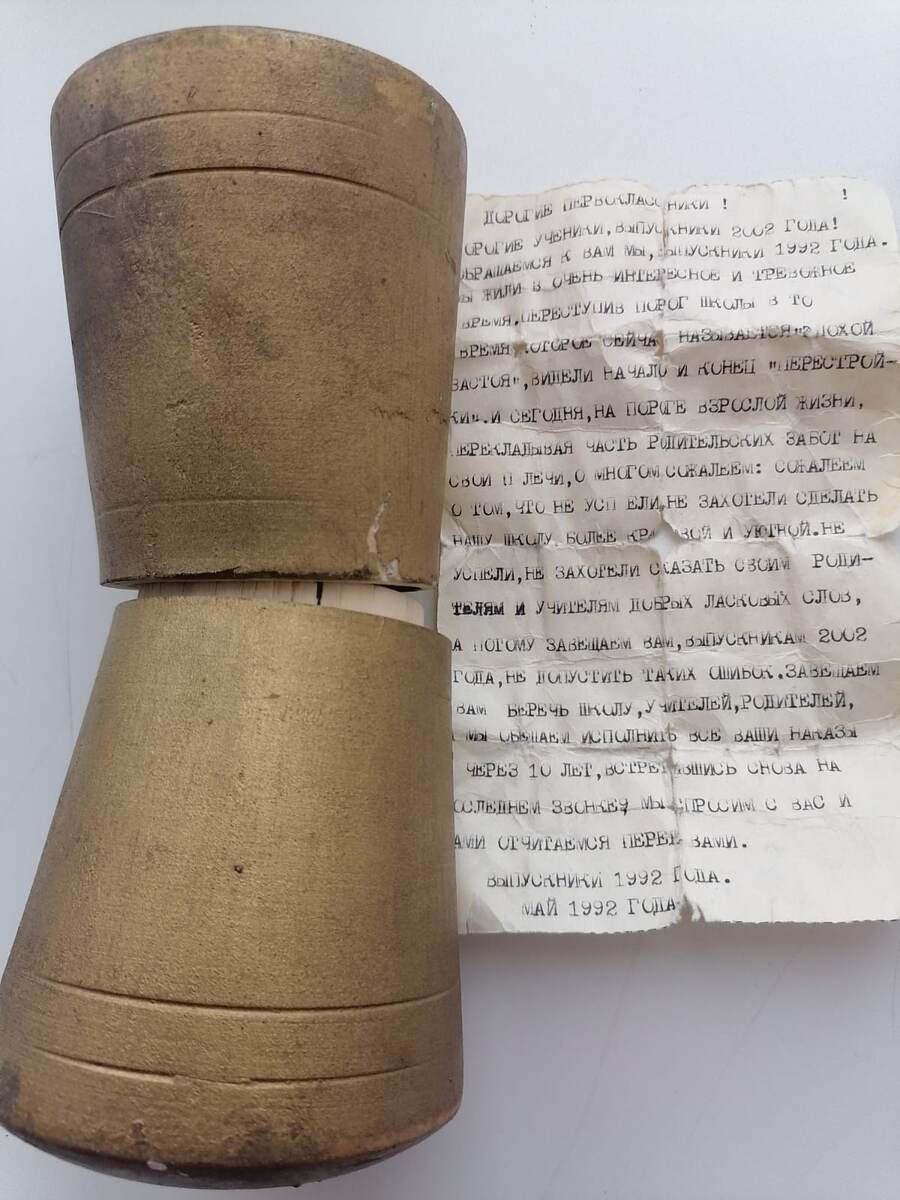 ДОРОГИЕ ПЕРВОКЛАССНИКИ ! !
ОРОГИЕ УЧЕНИКИ,ВЫПУСКНИКИ 2002 ГОДА!
БРАЩАЕМСЯ К ВАМ МЫ,ВЫПУСКНИКИ 1992 ГОДА.
Ы ЖИЛИ В ОЧЕНЬ ИНТЕРЕСНОЕ И ТРЕВОЖНОЕ
ВРЕМЯ.ПЕРЕСТУПИВ ПОРОГ ШКОЛЫ В ТО
ВРЕМЯ КОТОРОЕ СЕЙЧА НАЗЫВАЕТСЯ"ЭПОХОЙ
ЗАСТОЯ",ВИДЕЛИ НАЧАЛО И КОНЕЦ "ПЕРЕСТРОЙ-
КИ".И СЕГОДНЯ,НА ПОРОГЕ ВЗРОСЛОЙ ЖИЗНИ,
ПЕРЕКЛАДЫВАЯ ЧАСТЬ РОДИТЕЛЬСКИХ ЗАБОТ НА
СВОИ П ЛЕЧИ,О МНОГОМ СОЖАЛЕЕМ: СОЖАЛЕЕМ
О ТОМ,ЧТО НЕ УСП ЕЛИ,НЕ ЗАХОТЕЛИ СДЕЛАТЬ
НАШУ ШКОЛУ БОЛЕЕ КРА ВОЙ И УЮТНОЙ.НЕ
УСПЕЛИ,НЕ ЗАХОТЕЛИ СКАЗАТЬ СВОИМ РОДИ-
ТЕЛЯМ И УЧИТЕЛЯМ ДОБРЫХ ЛАСКОВЫХ СЛОВ,
А ПОТОМУ ЗАВЕЩАЕМ ВАМ,ВЫПУСКНИКАМ 2002
ГОДА,НЕ ДОПУСТИТЬ ТАКИХ ОШИБОК.ЗАВЕЩАЕМ
ВАМ БЕРЕЧЬ ШКОЛУ,УЧИТЕЛЕЙ,РОДИТЕЛЕЙ,
МЫ ОБЕЩАЕМ ИСПОЛНИТЬ ВСЕ ВАШИ НАКАЗЫ
ЧЕРЕЗ 10 ЛЕТ,ВСТРЕТИВШИСЬ СНОВА НА
ОСЛЕДНЕМ ЗВОНКЕ, МЫ СПРОСИМ С ВАС И
АМИ ОТЧИТАЕМСЯ ПЕРЕД ВАМИ.
ВЫПУСКНИКИ 1992 ГОДА.
МАЙ 1992 ГОДА